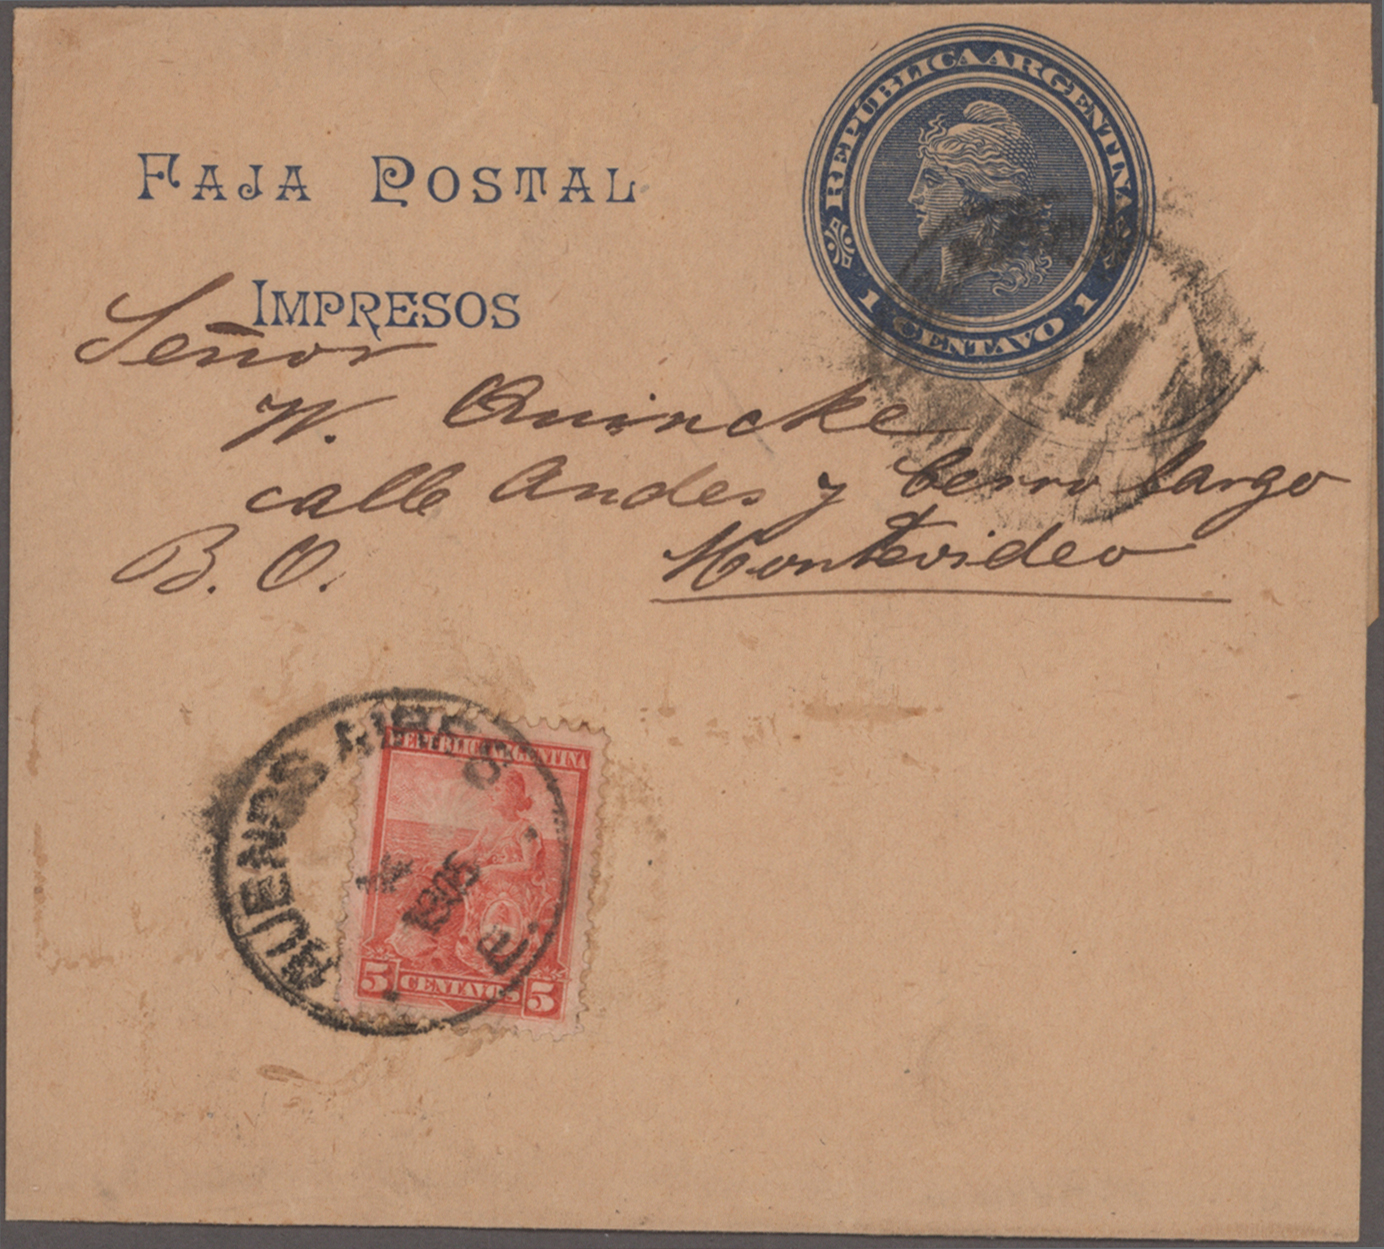 REPÚBLICA ARGENTINA
1 CENTAVO 1
FAJA POSTAL
IMPRESOS
Señor
W. Quincke
calle Andes y Cerro Largo
B. O. Montevideo
BUENOS AIRES
1905
REPUBLICA ARGENTINA
5 CENTAVOS 5